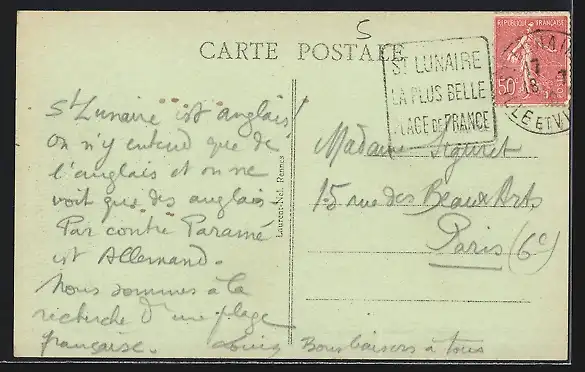 5
CARTE POSTALE
RÉPUBLIQUE FRANÇAISE
50c
ST LUNAIRE
LA PLUS BELLE
PLAGE DE FRANCE
ILLE ET V
St Lunaire est anglais!
On n'y entend que de
l'anglais et on ne
voit que des anglais
Par contre Paramé
est Allemand.
Nous sommes à la
recherche d'une plage
française. Louis Bons baisers à tous
Laurent-Nel, Rennes
Madame Siguret
15 rue des Beaux Arts
Paris (6e)